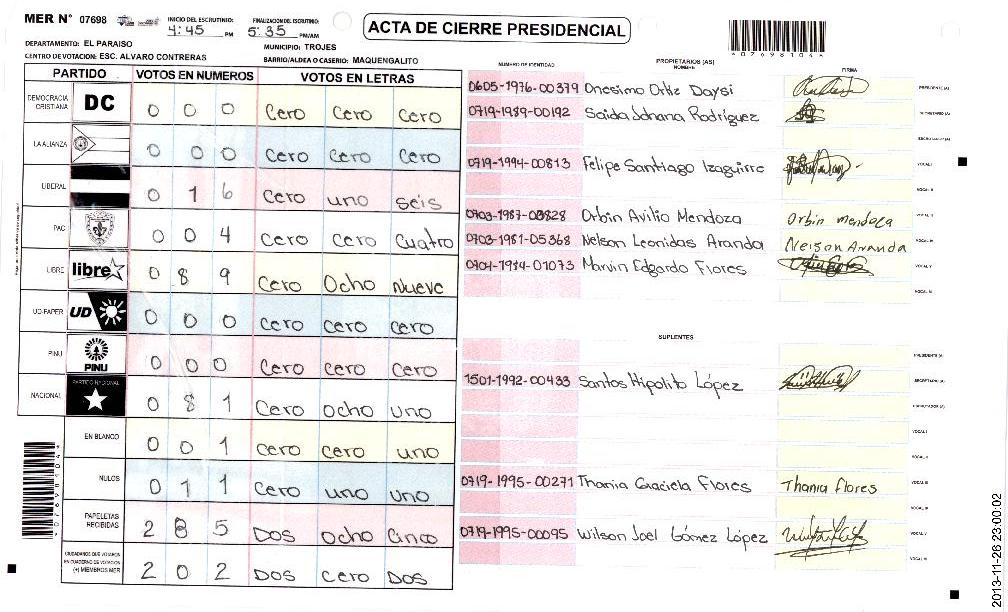 MER N° 07698
INICIO DEL ESCRUTINIO:
4:45 PM
FINALIZACION DEL ESCRUTINIO:
5:35 PM/AM
ACTA DE CIERRE PRESIDENCIAL
*07698104*
DEPARTAMENTO: EL PARAISO
MUNICIPIO: TROJES
CENTRO DE VOTACION: ESC. ALVARO CONTRERAS
BARRIO/ALDEA O CASERIO: MAQUENGALITO
PARTIDO VOTOS EN NUMEROS VOTOS EN LETRAS
DEMOCRACIA CRISTIANA DC 0 0 0 Cero Cero Cero
LA ALIANZA 0 0 0 Cero Cero Cero
LIBERAL 0 1 6 Cero uno seis
PAC 0 0 4 Cero Cero Cuatro
LIBRE libre 0 8 9 Cero Ocho nueve
UD-FAPER UD 0 0 0 Cero cero cero
PINU PINU 0 0 0 Cero cero Cero
NACIONAL PARTIDO NACIONAL 0 8 1 Cero ocho uno
EN BLANCO 0 0 1 cero cero uno
NULOS 0 1 1 Cero uno uno
PAPELETAS RECIBIDAS 2 8 5 DOS ocho Cinco
CIUDADANOS QUE VOTARON EN CUADERNO DE VOTACION (+) MIEMBROS MER 2 0 2 DOS Cero DOS
NUMERO DE IDENTIDAD
PROPIETARIOS (AS)
NOMBRE
FIRMA
0605-1976-00379 Onesimo Ortiz Daysi PRESIDENTE (A)
0719-1989-00192 Saida Johana Rodríguez SECRETARIO (A)
ESCRUTADOR (A)
0719-1994-00813 Felipe Santiago Izaguirre VOCAL I
VOCAL II
0703-1987-03828 Orbin Avilio Mendoza Orbin mendoza VOCAL III
0703-1981-05368 Nelson Leonidas Aranda Nelson Aranda VOCAL IV
0704-1984-01073 Marvin Edgardo Flores VOCAL V
SUPLENTES
PRESIDENTE (A)
1501-1992-00433 Santos Hipolito López SECRETARIO (A)
ESCRUTADOR (A)
VOCAL I
VOCAL II
0719-1995-00271 Thania Graciela Flores Thania flores VOCAL III
VOCAL IV
0719-1995-00095 Wilson Joel Gómez López VOCAL V
*07698104*
2013-11-26 23:00:02